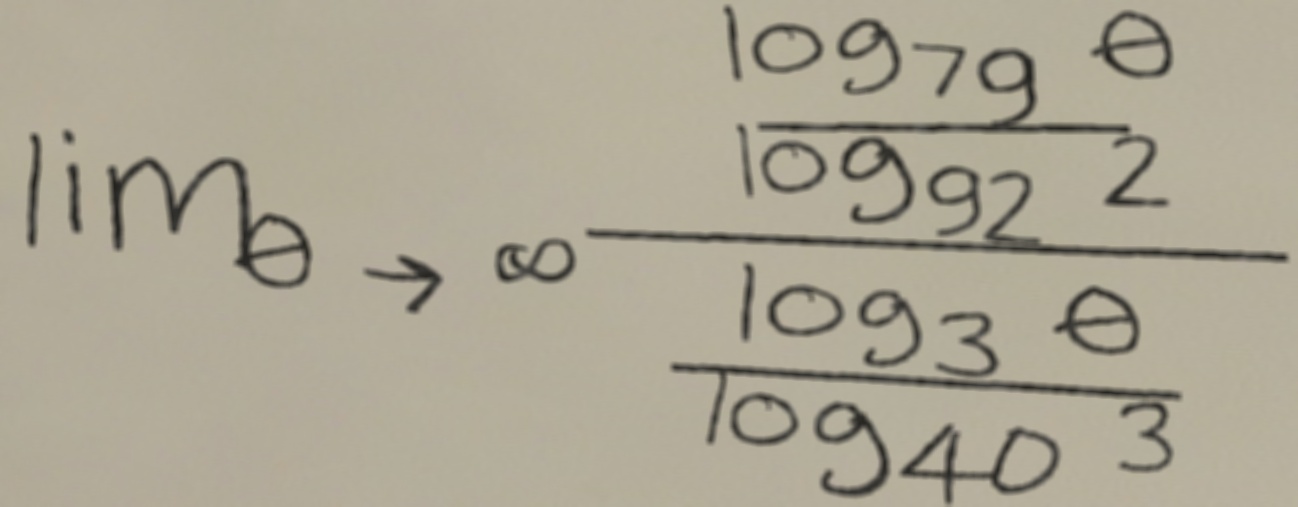 lim_{θ → ∞} \frac{\frac{log_{79} θ}{log_{92} 2}}{\frac{log_{3} θ}{log_{40} 3}}